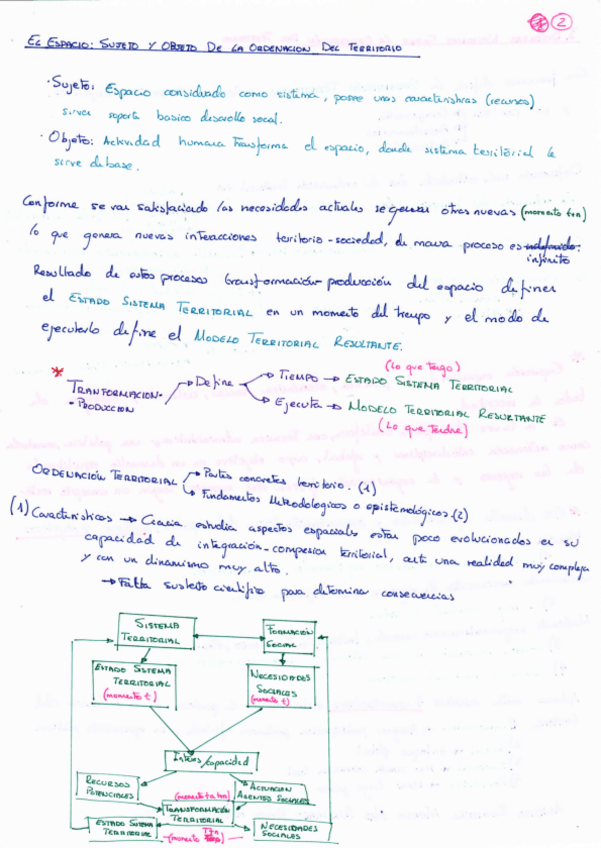 2
El Espacio: Sujeto y Objeto De La Ordenación Del Territorio
· Sujeto: Espacio considerado como sistema, posee unas características (recursos)
sirver soporte basico desarollo social.
· Objeto: Actividad humana transforma el espacio, donde sistema territorial le
sirve de base.
Conforme se van satisfaciendo las necesidades actuales se generan otras nuevas (momento t+n)
lo que genera nuevas interacciones territorio-sociedad, de manera proceso es indefinido.
infinito
Resultado de estos procesos transformación-producción del espacio definen
el Estado Sistema Territorial en un momento del tiempo y el modo de
ejecutarlo define el Modelo Territorial Resultante.
(Lo que tengo)
* Tranformacion-
- Produccion
→ Define → Tiempo → Estado Sistema Territorial
→ Ejecuta → Modelo Territorial Resultante
(Lo que tendre)
Ordenación Territorial → Partes concretas territorio. (1)
→ Fundamentos Metodologicos o epistemológicos. (2)
(1) Caracteristicas → Ciencia estudia aspectos espaciales estan poco evolucionados en su
capacidad de integración-compresion territorial, ante una realidad muy compleja
y con un dinamismo muy alto.
→ Falta sustento cientifico para determinar consecuencias
Sistema
Territorial
Formación
Social
Estado Sistema
Territorial
(momento t)
Necesidades
Sociales
(momento t)
Interes/capacidad
Recursos
Potenciales
Actuación
Agentes Sociales
(momento t a t+n)
Transformación
Territorial
Estado Sistema
Territorial
(momento
Necesidades
Sociales